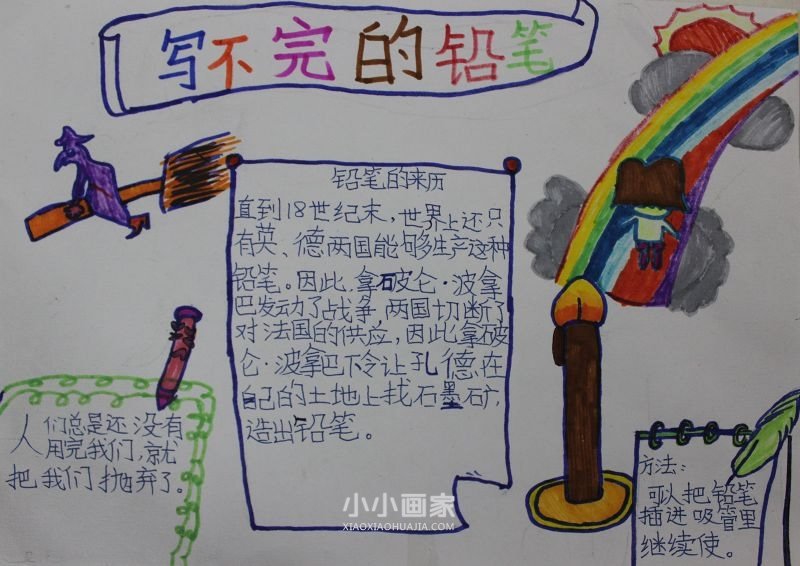 写不完的铅笔
铅笔的来历
直到18世纪末，世界上还只
有英、德两国能够生产这种
铅笔。因此，拿破仑·波拿
巴发动了战争，两国切断了
对法国的供应，因此，拿破
仑·波拿巴下令让孔德，在
自己的土地上找石墨矿，
造出铅笔。
人们总是还没有
用完我们，就
把我们抛弃了。
方法：
可以把铅笔
插进吸管里
继续使。
小小画家
XIAOXIAOHUAJIA.COM